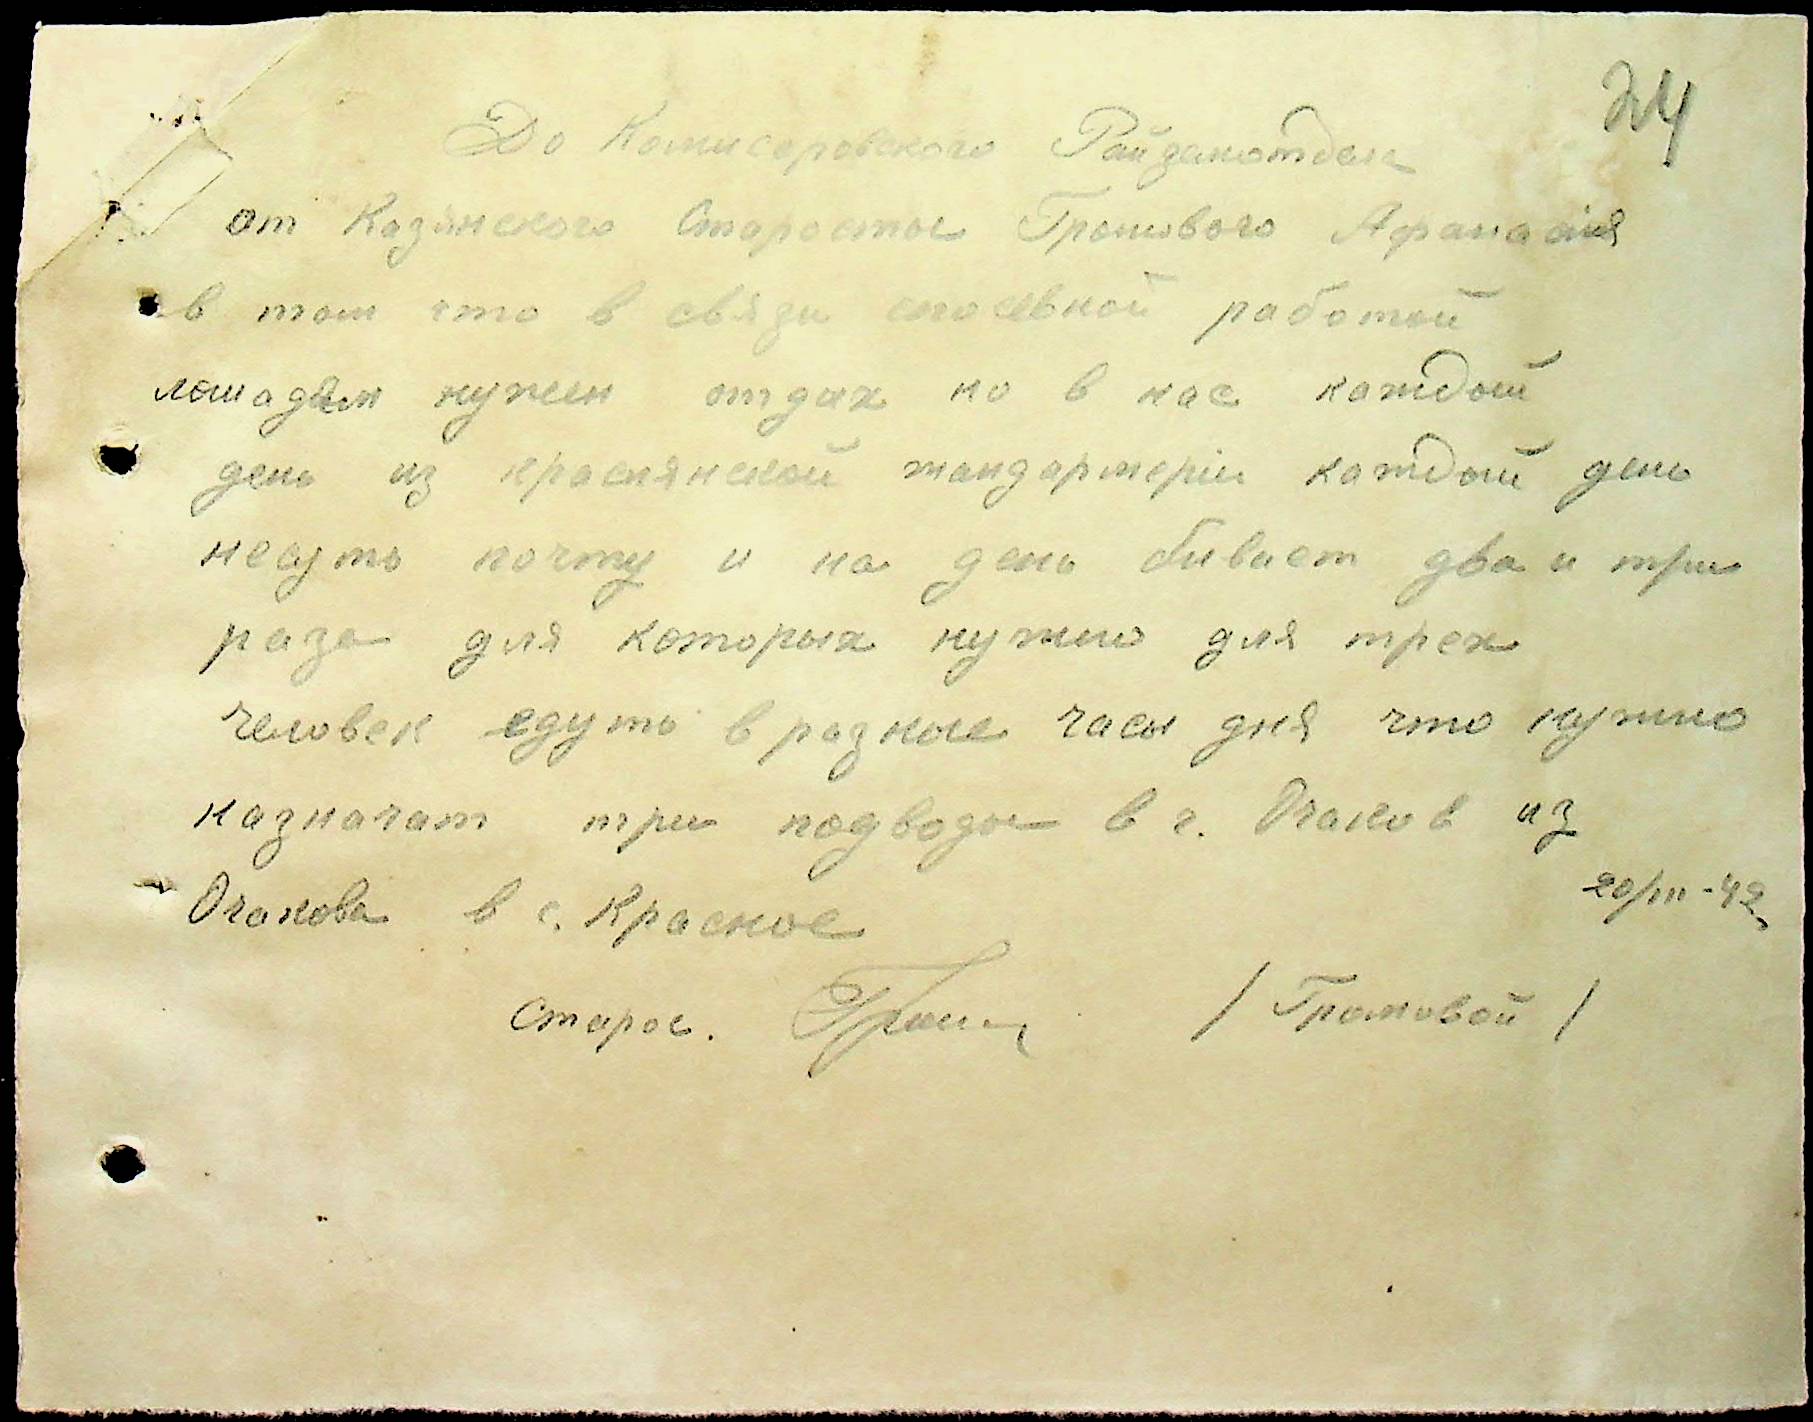 24
До Комисаровского Райземотдела
от Казанского Старосты Громового Афанасия
в том что в связи с посевной работой
лошадям нужен отдых но в нас каждой
день из краснянской жандармеріи каждой день
несуть почту и на день бивает два и три
раза для которых нужно для трех
человек едуть в разные часы дня что нужно
назначат три подводы в г. Очаков из
Очакова в с. Красное
20/III-42
Старос. / Громовой /